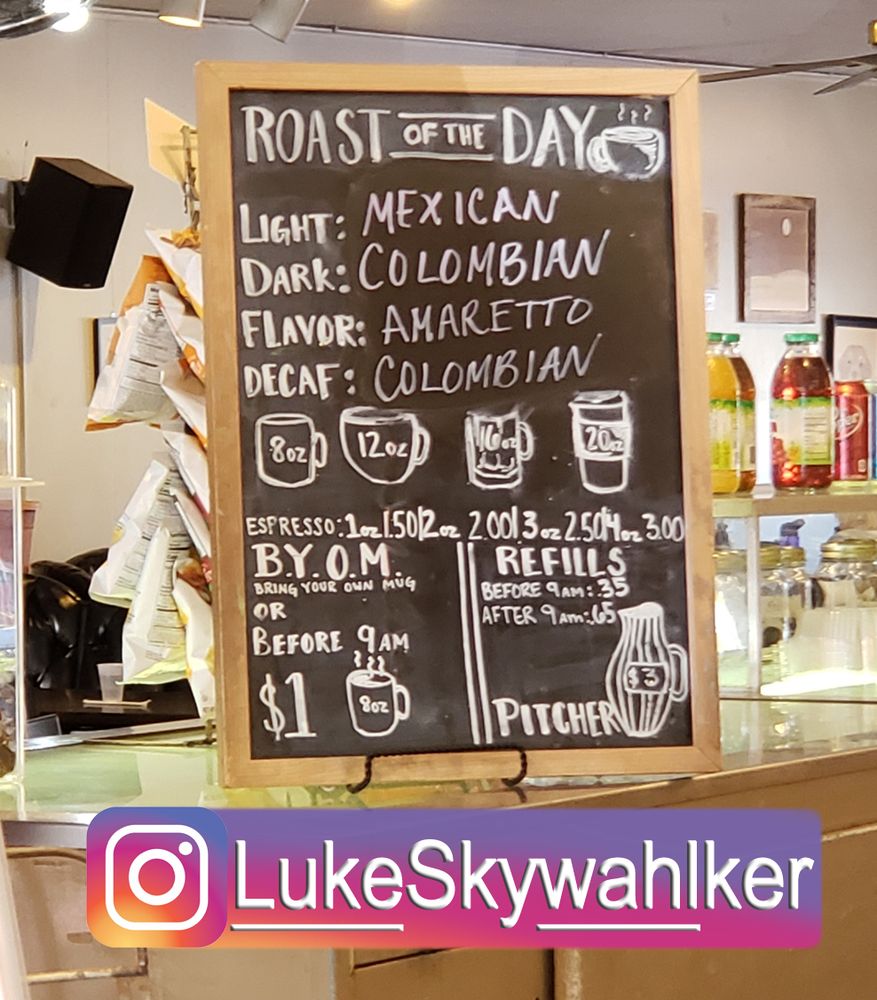 ROAST OF THE DAY
LIGHT: MEXICAN
DARK: COLOMBIAN
FLAVOR: AMARETTO
DECAF: COLOMBIAN
8oz 12oz 16oz 20oz
ESPRESSO: 1oz 1.50|2oz 2.00|3oz 2.50|4oz 3.00
B.Y.O.M.
BRING YOUR OWN MUG
OR
BEFORE 9AM
$1 8oz
REFILLS
BEFORE 9AM: .35
AFTER 9AM: .65
$3
PITCHER
LukeSkywahlker